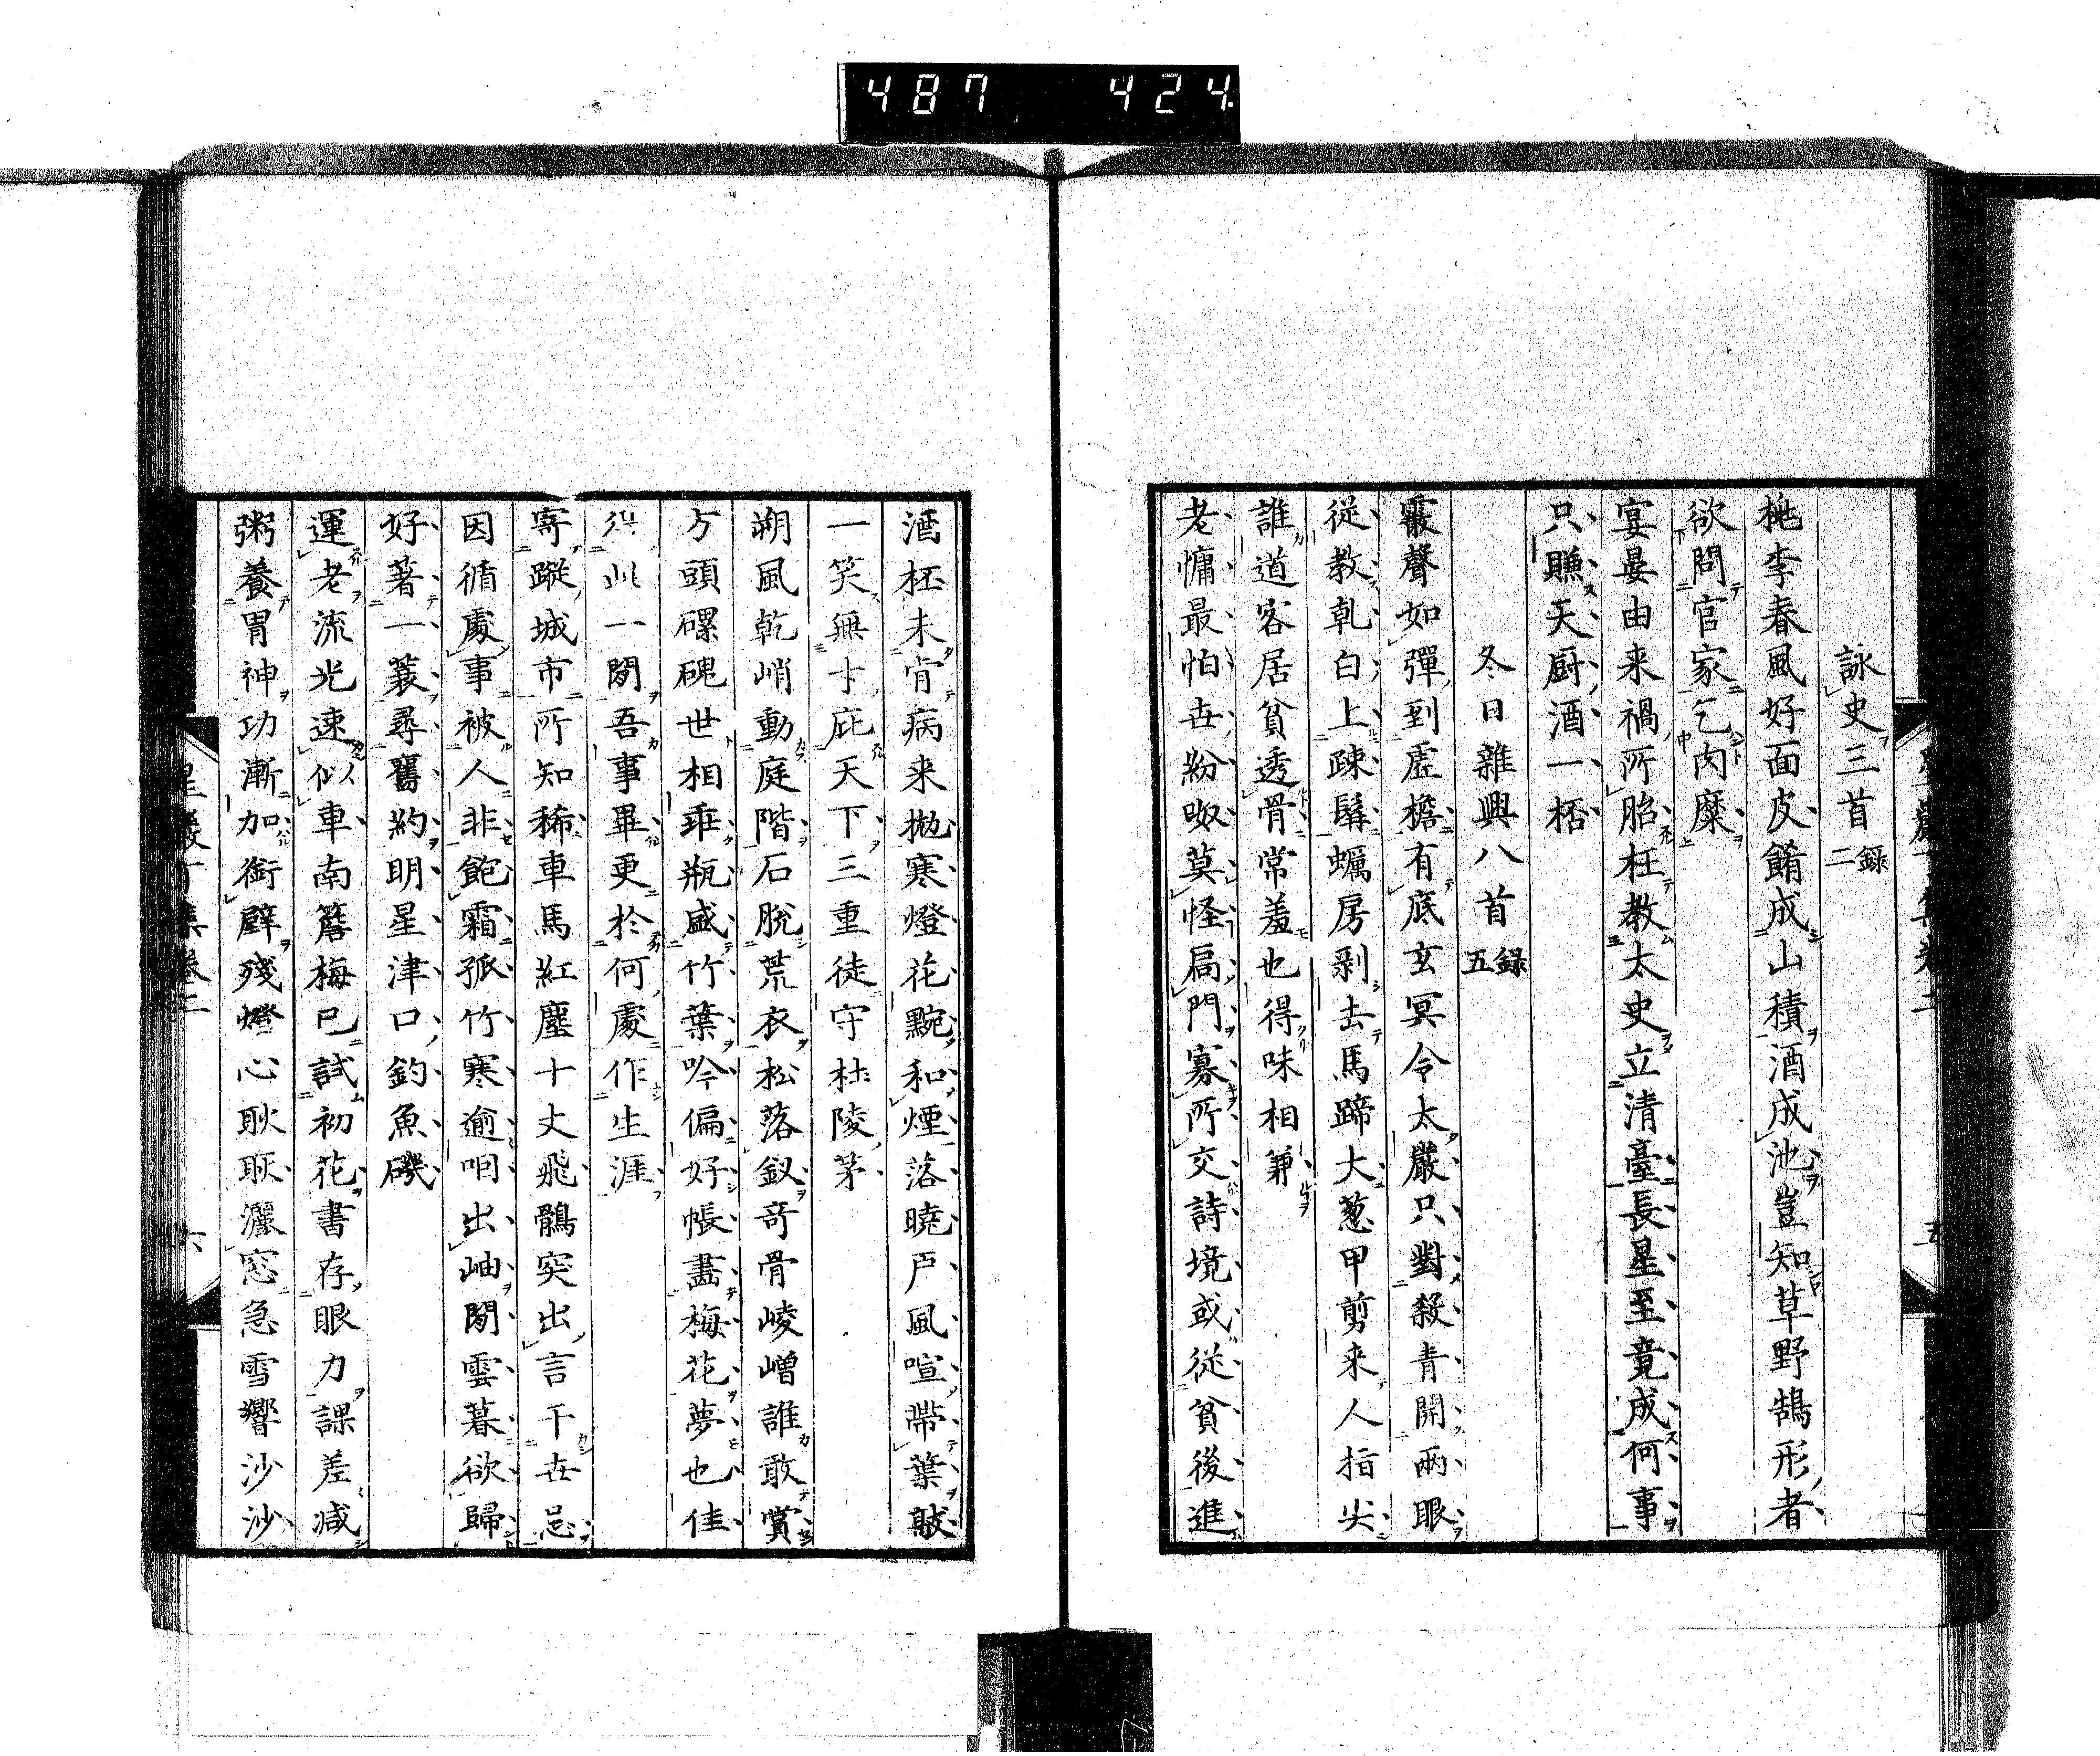 487 424
詠史三首 録二
桃李春風好面皮餚成山積酒成池豈知草野鵠形者
欲問官家乞肉糜
宴晏由来禍所胎枉教太史立清臺長星至竟成何事
只賺天厨酒一桮
冬日雜興八首 録五
霰聲如彈到虛檐有底玄冥令太嚴只對殺青開兩眼
從教乾白上疎髯蠣房剥去馬蹄大葱甲剪来人指尖
誰道客居貧透骨常羞也得味相兼
老慵最怕世紛呶莫怪扃門寡所交詩境或從貧後進
酒杯未肯病来拋寒燈花黦和煙落曉戶風喧帶葉敲
一笑無才庇天下三重徒守杜陵茅
朔風乾峭動庭階石脫荒衣松落釵奇骨崚嶒誰敢賞
方頭磥硊世相乖瓶盛竹葉吟偏好帳畫梅花夢也佳
得此一間吾事畢更於何處作生涯
寄蹤城市所知稀車馬紅塵十丈飛鶻突出言干世忌
因循處事被人非飽霜孤竹寒逾咽出岫閑雲暮欲歸
好著一蓑尋舊約明星津口釣魚磯
運老流光速似車南簷梅已試初花書存眼力課差減
粥養胃神功漸加銜壁殘燈心耿耿灑窓急雪響沙沙
星巖丁集卷二 六